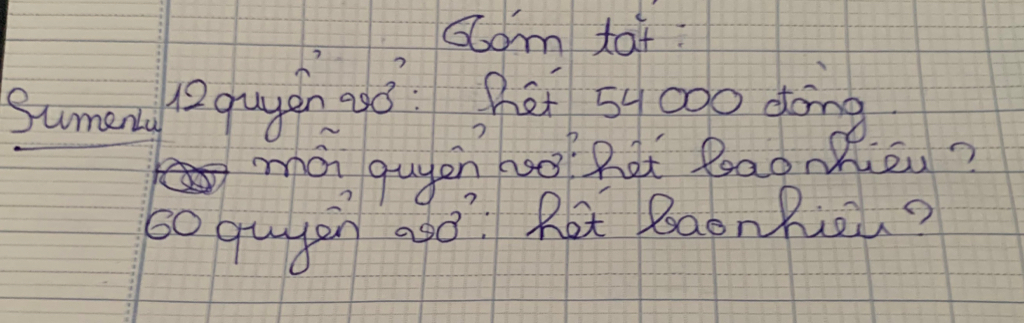 Tóm tắt:
12 quyển vở: hết 54000 đồng.
Sumenlu
mỗi quyển vở: hết bao nhiêu?
60 quyển vở: hết bao nhiêu?